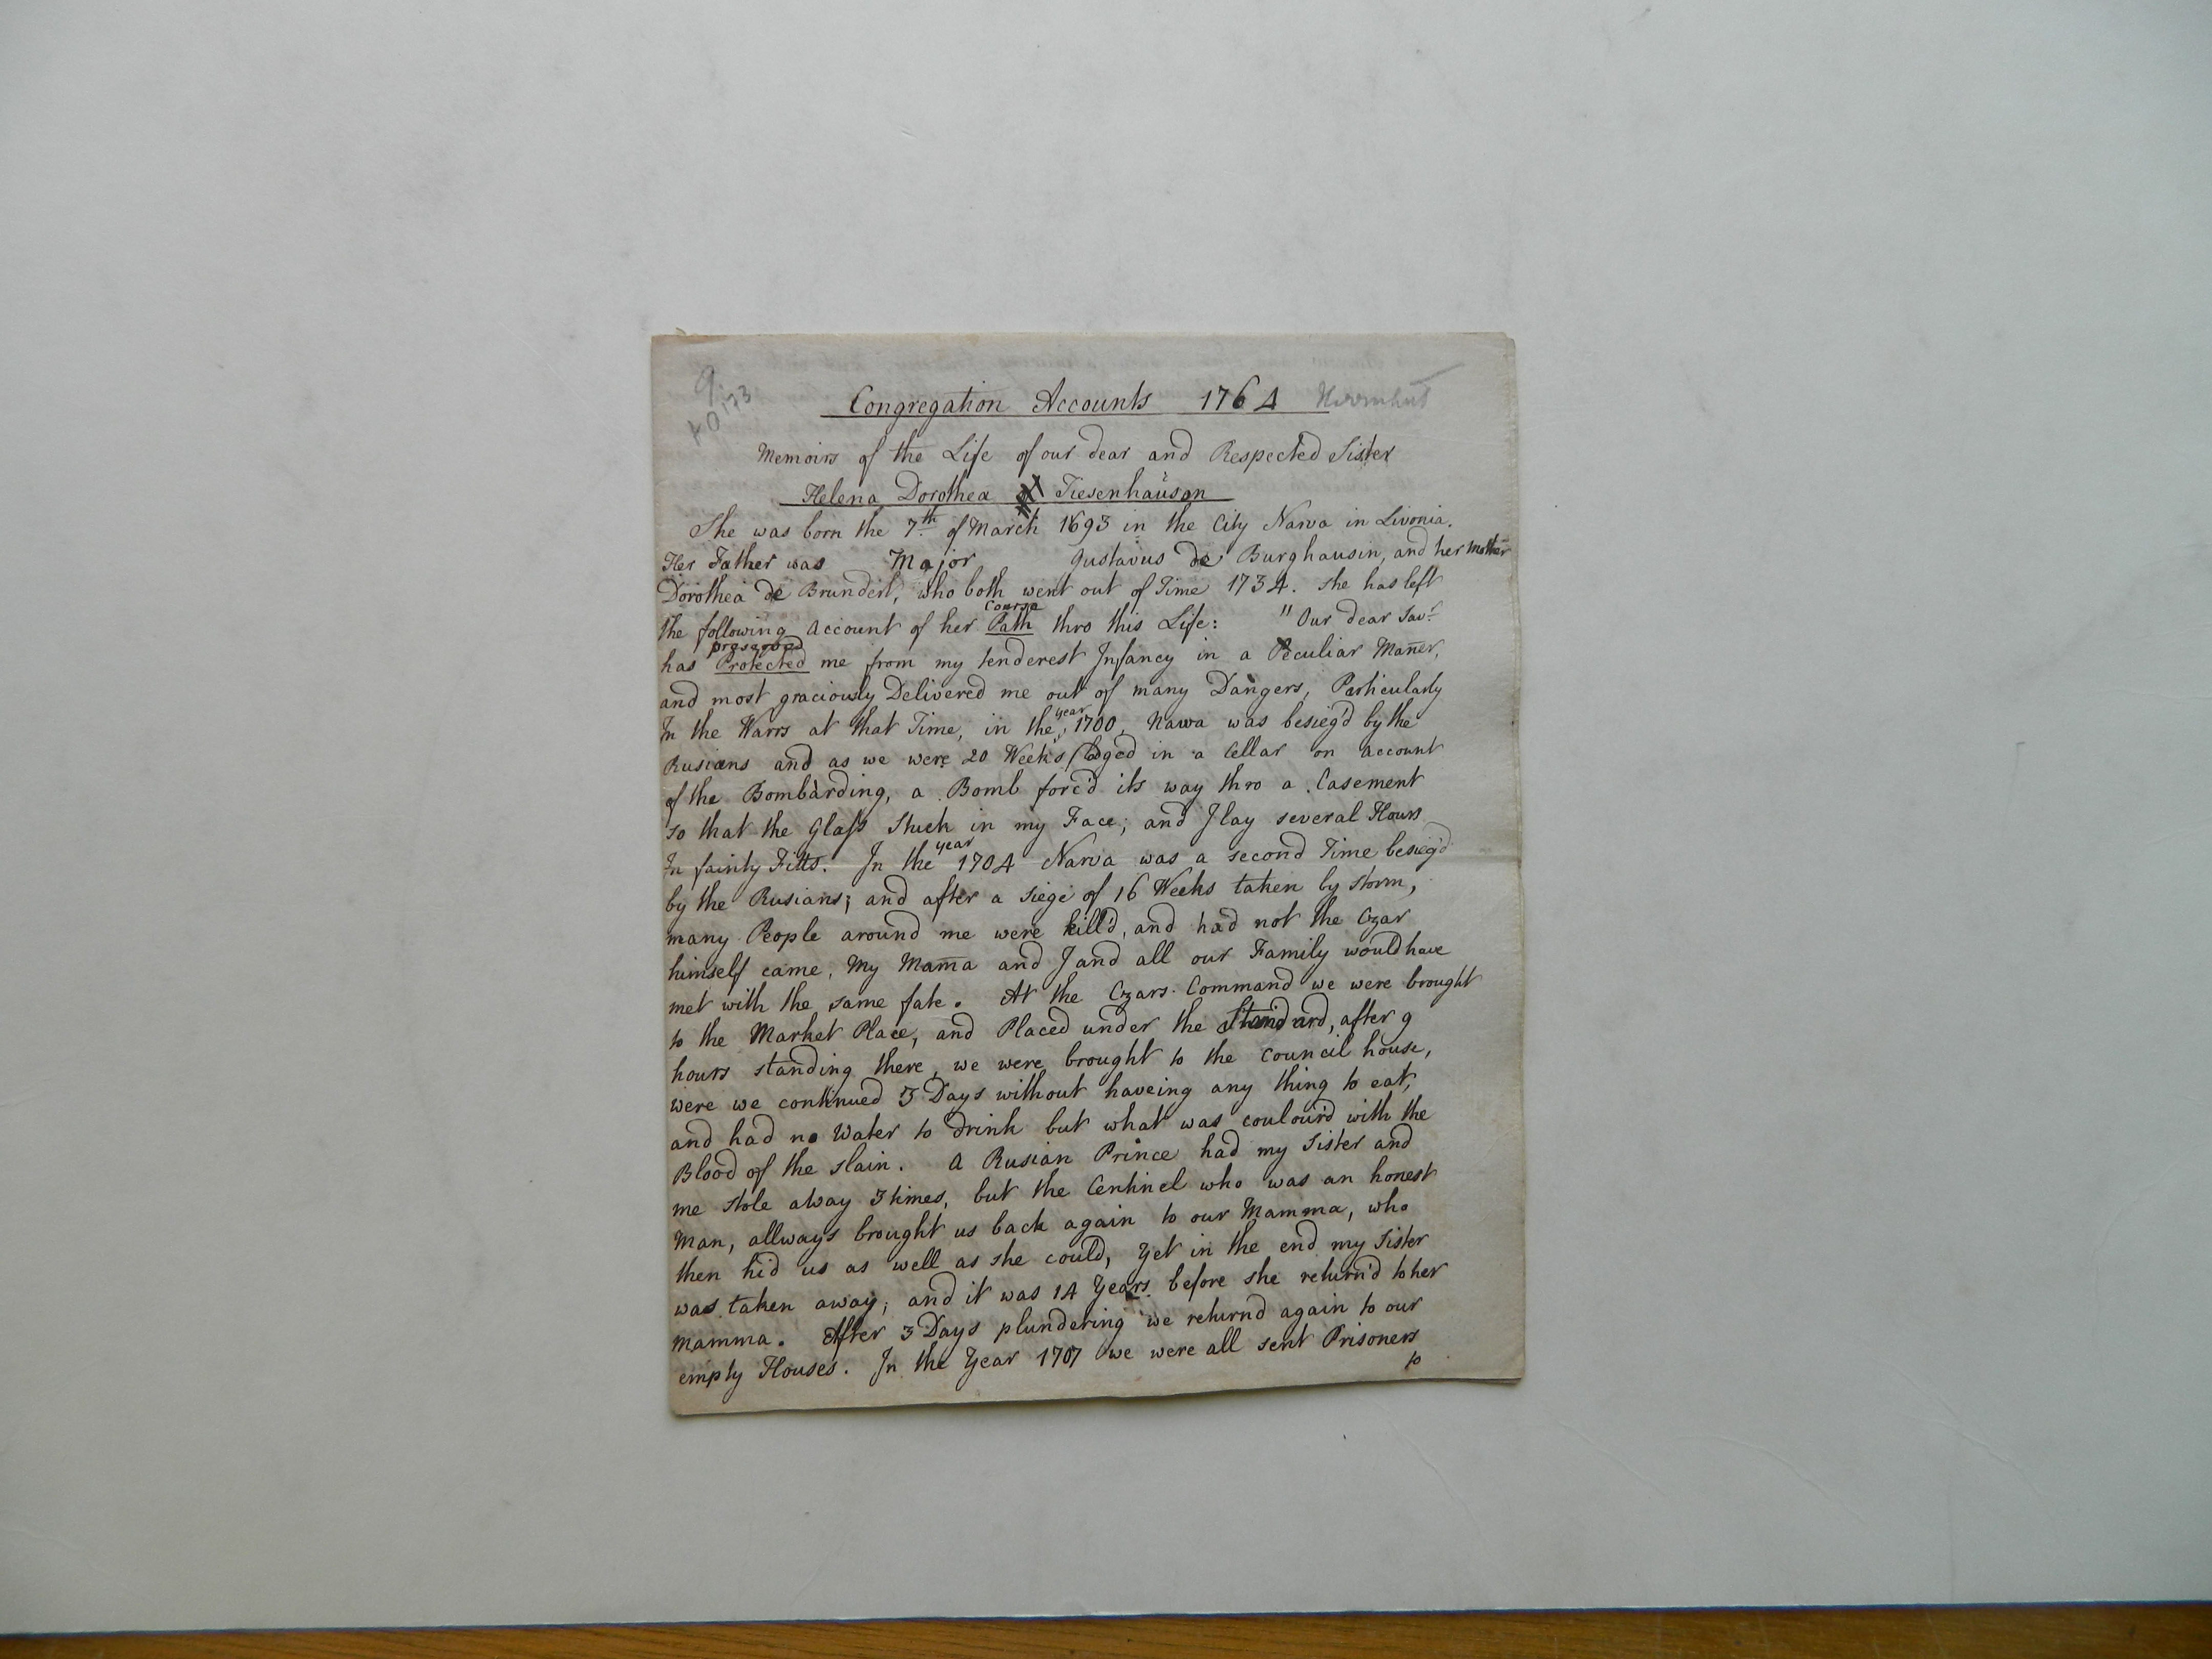 9.
Congregation Accounts 1764 Herrnhut
Memoirs of the Life of our dear and Respected Sister
Helena Dorothea Tiesenhaüson
She was born the 7th of March 1693 in the City Narva in Livonia.
Her Father was Major Gustavus de Burghausin, and her Mother
Dorothea de Brundert, who both went out of Time 1734. She has left
Course
the following Account of her Path thro this Life: " Our dear Savr
preserved
has Protected me from my tenderest Infancy in a Peculiar Mañer,
and most graciously Delivered me out of many Dangers, Particularly
year
In the Warrs at that Time, in the 1700, Narva was besieg'd by the
Rusians and as we were 20 Weeks lodged in a Cellar on Account
of the Bombarding, a Bomb forc'd its way thro a Casement
so that the Glass Stuck in my Face; and I lay several Hours
year
In fainty Fitts. In the 1704 Narva was a second Time besieg'd
by the Rusians; and after a siege of 16 Weeks taken by storm,
many People around me were kill'd, and had not the Czar
himself came, My Mama and I and all our Family would have
met with the same fate. At the Czars Command we were brought
to the Market Place, and Placed under the Standard, after 9
hours standing there, we were brought to the Council house,
were we continued 3 Days without haveing any thing to eat,
and had no Water to drink but what was coulour'd with the
Blood of the slain. A Rusian Prince had my Sister and
me stole away 3 times, but the Centinel who was an honest
Man, allways brought us back again to our Mamma, who
then hid us as well as she could, Yet in the end my Sister
was taken away; and it was 14 Years before she return'd to her
Mamma. After 3 Days plundering we returnd again to our
empty Houses. In the Year 1707 we were all sent Prisoners
to